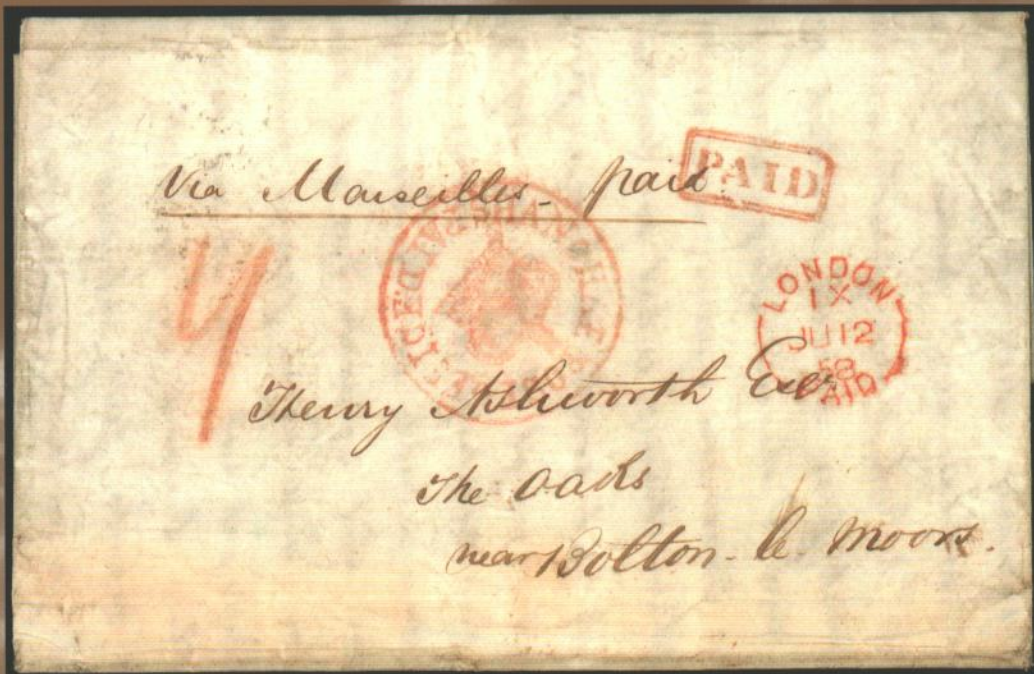 Via Marseilles - paid
PAID
LONDON
1X
JU 12
58
PAID
Henry Ashworth Esqr
The Oaks
near Bolton - le - Moors.